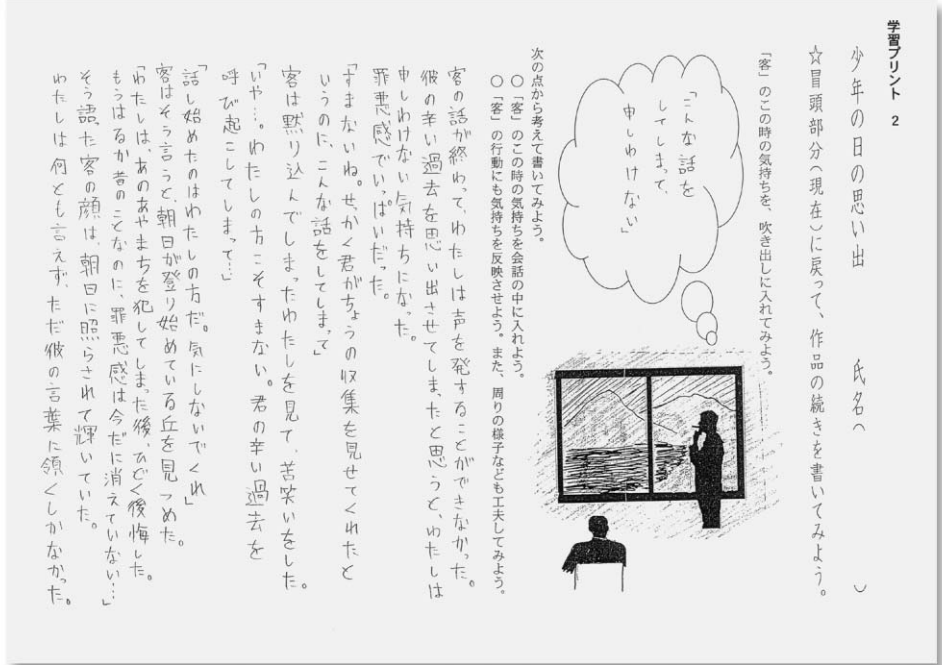 学習プリント 2
少年の日の思い出 氏名( )
☆冒頭部分(現在)に戻って、作品の続きを書いてみよう。
「客」のこの時の気持ちを、吹き出しに入れてみよう。
「こんな話を
してしまって、
申しわけない」
次の点から考えて書いてみよう。
○「客」のこの時の気持ちを会話の中に入れよう。
○「客」の行動にも気持ちを反映させよう。また、周りの様子なども工夫してみよう。
客の話が終わって、わたしは声を発することができなかった。
彼の辛い過去を思い出させてしまったと思うと、わたしは
申しわけない気持ちになった。
罪悪感でいっぱいだった。
「すまないね。せっかく君がちょうの収集を見せてくれたと
いうのに、こんな話をしてしまって」
客は黙り込んでしまったわたしを見て、苦笑いをした。
「いや…。わたしの方こそすまない。君の辛い過去を
呼び起こしてしまって…」
「話し始めたのはわたしの方だ。気にしないでくれ」
客はそう言うと、朝日が登り始めている丘を見つめた。
「わたしは、あのあやまちを犯してしまった後、ひどく後悔した。
もうはるか昔のことなのに、罪悪感は今だに消えていない…」
そう語った客の顔は、朝日に照らされて輝いていた。
わたしは何とも言えず、ただ彼の言葉に頷くしかなかった。